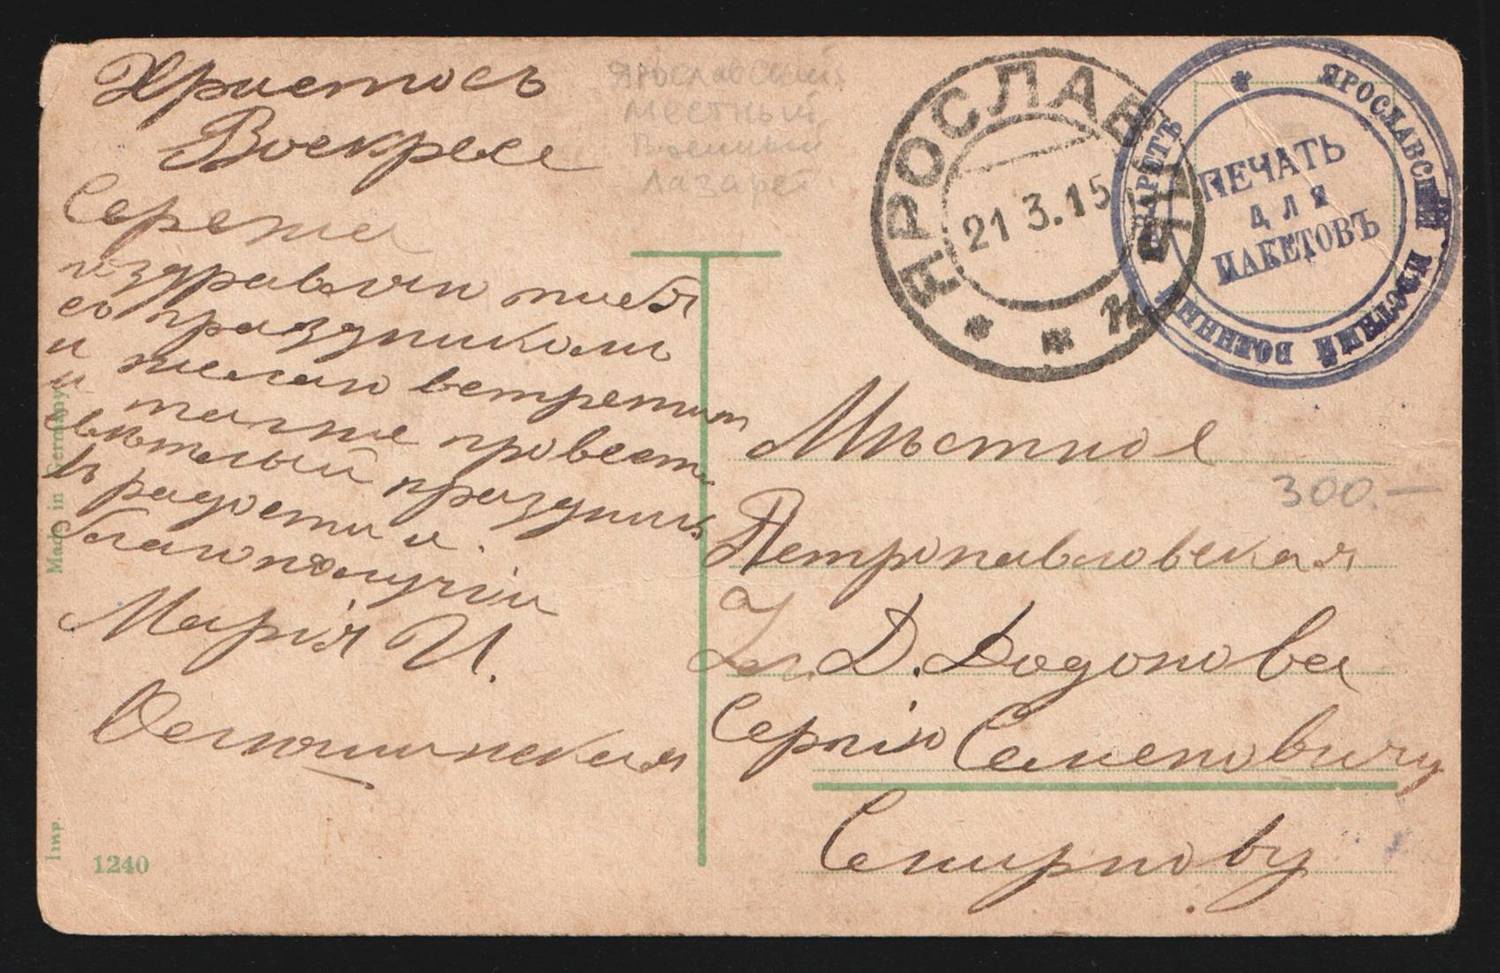 Христосъ
Воскресе
Сережа
поздравляю тебя
съ праздникомъ
и желаю встретить
и также провести
свѣтлый праздникъ
въ радости и
благополучіи
Марія И.
Ярославский
Местный
Военный
Лазарет
ЯРОСЛАВЛЬ
21 3.15
ЯРОСЛАВСКІЙ МѢСТНЫЙ ВОЕННЫЙ ЛАЗАРЕТЪ
ПЕЧАТЬ
ДЛЯ
ПАКЕТОВЪ
Мѣстное
300.—
Петропавловская
ул. Д. Додонова
Сергѣю Семеновичу
Смирнову
Made in Germany
Imp.
1240